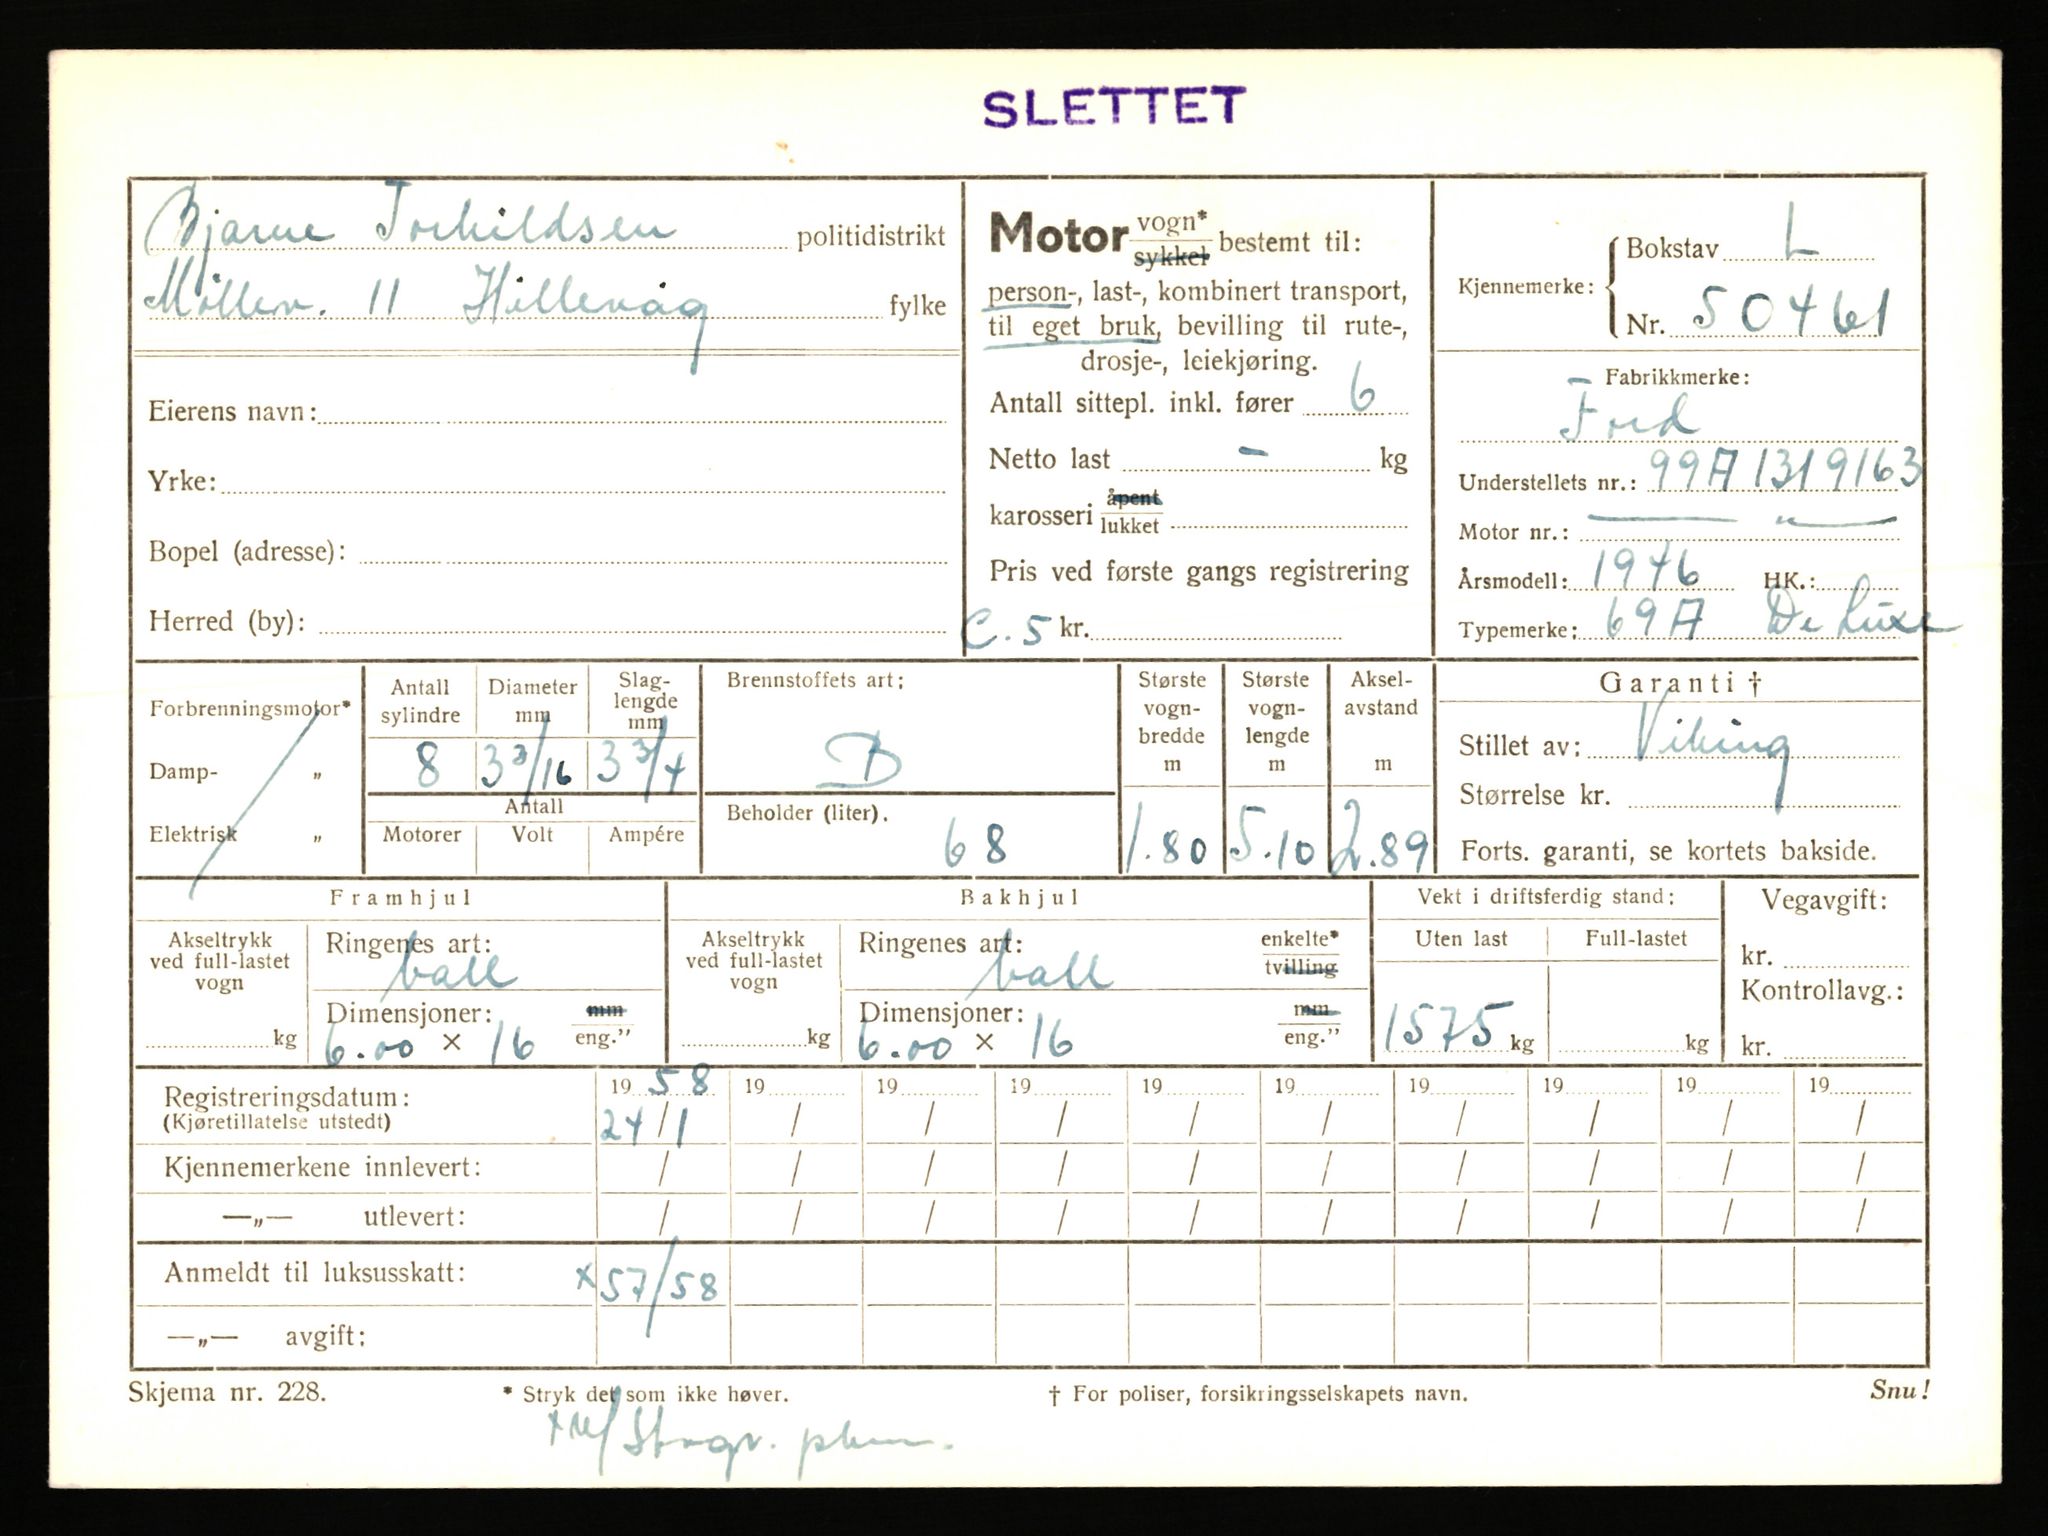 SLETTET
Bjarne Torkildsen politidistrikt
Møllerv. 11 Hillevåg fylke
Eierens navn:
Yrke:
Bopel (adresse):
Herred (by):
Motor vogn* sykkel bestemt til:
person-, last-, kombinert transport,
til eget bruk, bevilling til rute-,
drosje-, leiekjøring.
Antall sittepl. inkl. fører 6
Netto last - kg
karosseri åpent lukket
Pris ved første gangs registrering
C. 5 kr.
Kjennemerke: Bokstav L
Nr. 50461
Fabrikkmerke:
Ford
Understellets nr.: 99A 1319163
Motor nr.: — " —
Årsmodell: 1946 HK.:
Typemerke: 69A De Luxe
Forbrenningsmotor*
Damp- „
Elektrisk „
Antall sylindre
8
Diameter mm
3 3/16
Slag-lengde mm
3 3/4
Antall
Motorer Volt Ampére
Brennstoffets art:
B
Beholder (liter).
68
Største vogn-bredde m
1.80
Største vogn-lengde m
5.10
Aksel-avstand m
2.89
Garanti †
Stillet av: Viking
Størrelse kr.
Forts. garanti, se kortets bakside.
Framhjul
Akseltrykk ved full-lastet vogn
kg
Ringenes art:
ball
Dimensjoner: mm
6.00 × 16 eng.”
Bakhjul
Akseltrykk ved full-lastet vogn
kg
Ringenes art: enkelte*
ball tvilling
Dimensjoner: mm
6.00 × 16 eng.”
Vekt i driftsferdig stand:
Uten last Full-lastet
1575 kg kg
Vegavgift:
kr.
Kontrollavg.:
kr.
Registreringsdatum: 19 58 19 19 19 19 19 19 19 19 19
(Kjøretillatelse utstedt) 24/1 / / / / / / / / /
Kjennemerkene innlevert: / / / / / / / / / /
—„— utlevert: / / / / / / / / / /
Anmeldt til luksusskatt: x 57/58
—„— avgift:
Skjema nr. 228. * Stryk det som ikke høver. † For poliser, forsikringsselskapets navn. Snu!